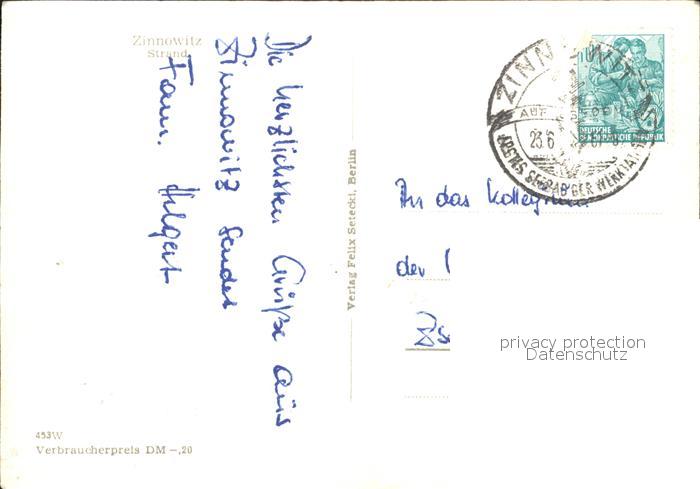 Zinnowitz
Strand
Die herzlichsten Grüße aus
Zinnowitz sendet
Fam. Hilgert
Verlag Felix Setecki, Berlin
453W
Verbraucherpreis DM -,20
ZINNOWITZ
AUF
23.6
ERSTES SEEBAD DER WERKTÄTIGEN
10
DEUTSCHE
DEMOKRATISCHE REPUBLIK
An das Kollegium
der
privacy protection
Datenschutz